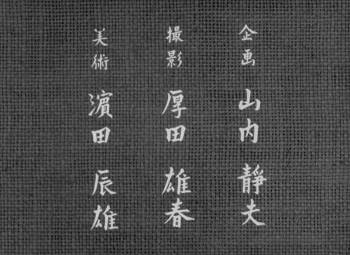 企画 山内静夫
撮影 厚田雄春
美術 濱田辰雄